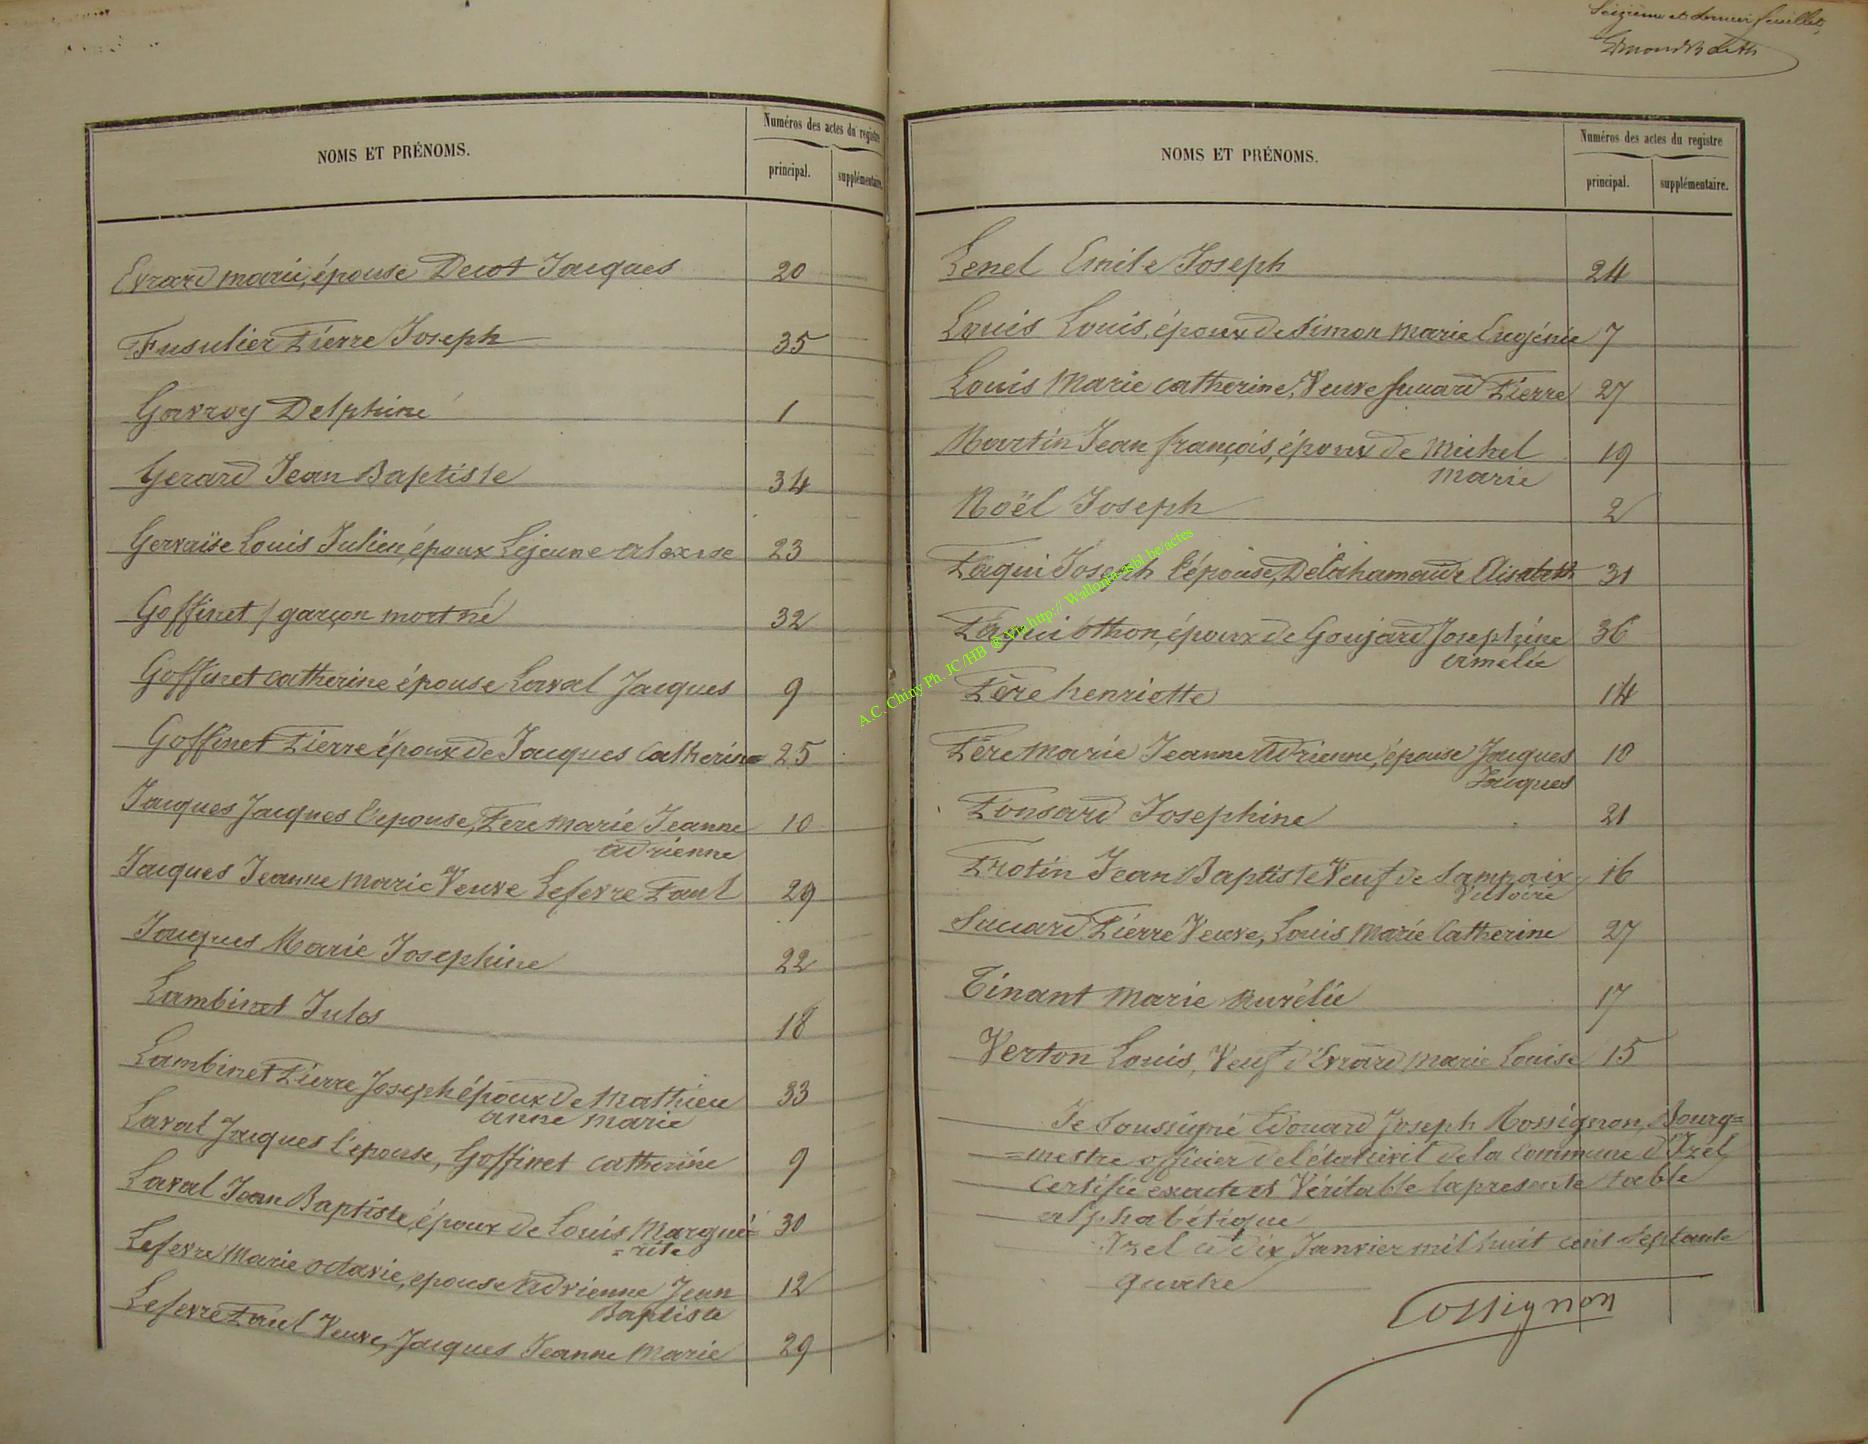 NOMS ET PRÉNOMS.
Numéros des actes du registre
principal.
supplémentaire.
Evrard marie, épouse Decot Jacques 20
Fusulier Pierre Joseph 35
Gavroy Delphine 1
Gerard Jean Baptiste 34
Gervaise Louis Julien, époux Lejeune alexise 23
Goffinet / garçon mort né 32
Goffinet catherine épouse Laval Jacques 9
Goffinet Pierre époux de Jacques Catherine 25
Jacques Jacques l'epouse, Pere Marie Jeanne 10
adrienne
Jacques Jeanne Marie Veuve Lefevre Paul 29
Jacques Marie Josephine 22
Lambinet Jules 18
Lambinet Pierre Joseph époux de Mathieu 33
anne marie
Laval Jacques l'epouse, Goffinet catherine 9
Laval Jean Baptiste, époux de Louis Margué= 30
=rite
Lefevre Marie octavie, epouse adrienne Jean 12
Baptiste
Lefevre Paul Veuve, Jacques Jeanne Marie 29
Seizième et dernier feuillet,
NOMS ET PRÉNOMS.
Numéros des actes du registre
principal.
supplémentaire.
Lenel Emile Joseph 24
Louis Louis, époux de Simon Marie Eugénie 7
Louis Marie catherine, Veuve Suuard Pierre 27
Martin Jean françois, époux de Michel 19
Marie
Noël Joseph 2
Paqui Joseph l'épouse, Delahamaide Elisabeth 31
Paqui othon, époux de Goujard Josephine 36
amelie
Père henriette 14
Père Marie Jeanne Adrienne, épouse Jacques 10
Jacques
Ponsard Josephine 21
Protin Jean Baptiste Veuf de Sampaix 16
Victoire
Suuard Pierre Veuve, Louis Marie Catherine 27
Tinant Marie Aurélie 17
Verton Louis, Veuf d'Evrard Marie Louise 15
Je Soussigné Edouard Joseph Rossignon, Bourg=
=mestre officier de l'état civil de la Commune d'Izel
Certifie exacte et Véritable la presente table
alphabétique
Izel ce dix Janvier mil huit cent septante
quatre
Rossignon
A.C. Chiny Ph. JC/HB ® Via http:// Wallonia-asbl.be/actes